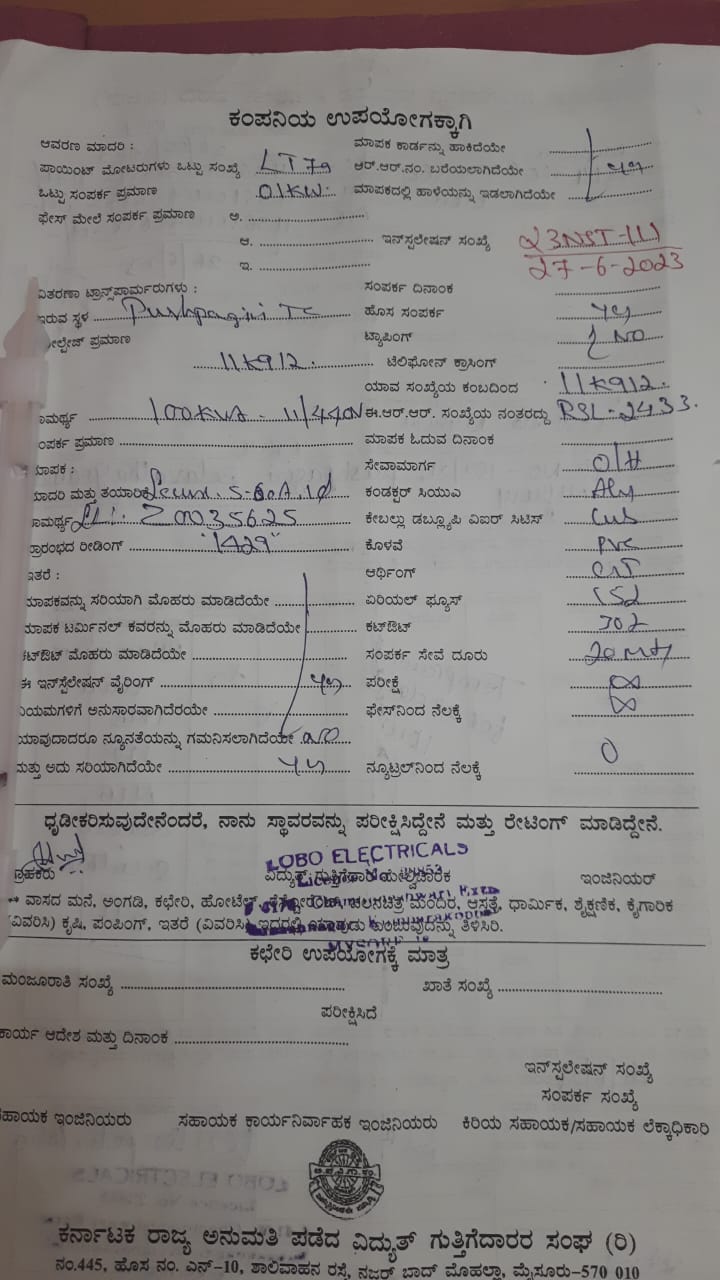 ಕಂಪನಿಯ ಉಪಯೋಗಕ್ಕಾಗಿ
ಆವರಣ ಮಾದರಿ : ಮಾಪಕ ಕಾರ್ಡನ್ನು ಹಾಕಿದೆಯೇ
ಪಾಯಿಂಟ್ ಮೋಟರುಗಳು ಒಟ್ಟು ಸಂಖ್ಯೆ LT7a ಆರ್.ಆರ್.ನಂ. ಬರೆಯಲಾಗಿದೆಯೇ yes
ಒಟ್ಟು ಸಂಪರ್ಕ ಪ್ರಮಾಣ 01KW ಮಾಪಕದಲ್ಲಿ ಹಾಳೆಯನ್ನು ಇಡಲಾಗಿದೆಯೇ
ಫೇಸ್ ಮೇಲೆ ಸಂಪರ್ಕ ಪ್ರಮಾಣ ಅ.
ಆ. ಇನ್‌ಸ್ಟಲೇಷನ್ ಸಂಖ್ಯೆ 23NST-111
ಇ. 27-6-2023
ವಿತರಣಾ ಟ್ರಾನ್ಸ್‌ಪಾರ್ಮರುಗಳು : ಸಂಪರ್ಕ ದಿನಾಂಕ
ಇರುವ ಸ್ಥಳ Pushpagiri TC ಹೊಸ ಸಂಪರ್ಕ yes
ಪ್ರಮಾಣ ಟ್ಯಾಪಿಂಗ್ NO
11K912. ಟೆಲಿಫೋನ್ ಕ್ರಾಸಿಂಗ್
ಯಾವ ಸಂಖ್ಯೆಯ ಕಂಬದಿಂದ 11K912.
ಾಮರ್ಥ್ಯ 100KVA - 11/440V ಈ.ಆರ್.ಆರ್. ಸಂಖ್ಯೆಯ ನಂತರದ್ದು RSL-2433.
ಂಪರ್ಕ ಪ್ರಮಾಣ ಮಾಪಕ ಓದುವ ದಿನಾಂಕ
ಮಾಪಕ : ಸೇವಾಮಾರ್ಗ O/H
ಮಾದರಿ ಮತ್ತು ತಯಾರಿಕೆ 5-60A ಕಂಡಕ್ಟರ್ ಸಿಯುಎ Aly
ಾಮರ್ಥ್ಯ 20035625 ಕೇಬಲ್ಲು ಡಬ್ಲ್ಯೂಪಿ ವಿಐರ್ ಸಿಟಿಸ್
ಪ್ರಾರಂಭದ ರೀಡಿಂಗ್ "1429" ಕೊಳವೆ PVC
ಇತರೆ : ಆರ್ಥಿಂಗ್
ಮಾಪಕವನ್ನು ಸರಿಯಾಗಿ ಮೊಹರು ಮಾಡಿದೆಯೇ ಏರಿಯಲ್ ಫ್ಯೂಸ್
ಮಾಪಕ ಟರ್ಮಿನಲ್ ಕವರನ್ನು ಮೊಹರು ಮಾಡಿದೆಯೇ ಕಟ್‌ಔಟ್
ಕಟ್‌ಔಟ್ ಮೊಹರು ಮಾಡಿದೆಯೇ ಸಂಪರ್ಕ ಸೇವೆ ದೂರು 20 Mts
ಈ ಇನ್‌ಸ್ಟೆಲೇಷನ್ ವೈರಿಂಗ್ yes ಪರೀಕ್ಷೆ ∞
ನಿಯಮಗಳಿಗೆ ಅನುಸಾರವಾಗಿದೆರಯೇ ಫೇಸ್‌ನಿಂದ ನೆಲಕ್ಕೆ ∞
ಯಾವುದಾದರೂ ನ್ಯೂನತೆಯನ್ನು ಗಮನಿಸಲಾಗಿದೆಯೇ NO
ಮತ್ತು ಅದು ಸರಿಯಾಗಿದೆಯೇ yes ನ್ಯೂಟ್ರಲ್‌ನಿಂದ ನೆಲಕ್ಕೆ 0
ಧೃಡೀಕರಿಸುವುದೇನೆಂದರೆ, ನಾನು ಸ್ಥಾವರವನ್ನು ಪರೀಕ್ಷಿಸಿದ್ದೇನೆ ಮತ್ತು ರೇಟಿಂಗ್ ಮಾಡಿದ್ದೇನೆ.
LOBO ELECTRICALS
ಗ್ರಾಹಕರು ವಿದ್ಯುತ್ ಗುತ್ತಿಗೆದಾರ ಮೇಲ್ವಿಚಾರಕ ಇಂಜಿನಿಯರ್
** ವಾಸದ ಮನೆ, ಅಂಗಡಿ, ಕಛೇರಿ, ಹೋಟೆಲ್, ಚಲನಚಿತ್ರ ಮಂದಿರ, ಆಸ್ಪತ್ರೆ, ಧಾರ್ಮಿಕ, ಶೈಕ್ಷಣಿಕ, ಕೈಗಾರಿಕ
(ವಿವರಿಸಿ) ಕೃಷಿ, ಪಂಪಿಂಗ್, ಇತರೆ (ವಿವರಿಸಿ) ಇದರಲ್ಲಿ ತಿಳಿಸಿರಿ.
ಕಛೇರಿ ಉಪಯೋಗಕ್ಕೆ ಮಾತ್ರ
ಮಂಜೂರಾತಿ ಸಂಖ್ಯೆ ಖಾತೆ ಸಂಖ್ಯೆ
ಪರೀಕ್ಷಿಸಿದೆ
ಕಾರ್ಯ ಆದೇಶ ಮತ್ತು ದಿನಾಂಕ
ಇನ್‌ಸ್ಟಲೇಷನ್ ಸಂಖ್ಯೆ
ಸಂಪರ್ಕ ಸಂಖ್ಯೆ
ಸಹಾಯಕ ಇಂಜಿನಿಯರು ಸಹಾಯಕ ಕಾರ್ಯನಿರ್ವಾಹಕ ಇಂಜಿನಿಯರು ಕಿರಿಯ ಸಹಾಯಕ/ಸಹಾಯಕ ಲೆಕ್ಕಾಧಿಕಾರಿ
ಕರ್ನಾಟಕ ರಾಜ್ಯ ಅನುಮತಿ ಪಡೆದ ವಿದ್ಯುತ್ ಗುತ್ತಿಗೆದಾರರ ಸಂಘ (ರಿ)
ನಂ.445, ಹೊಸ ನಂ. ಎನ್-10, ಶಾಲಿವಾಹನ ರಸ್ತೆ, ನಜರ್ ಬಾದ್ ಮೊಹಲ್ಲಾ, ಮೈಸೂರು-570 010